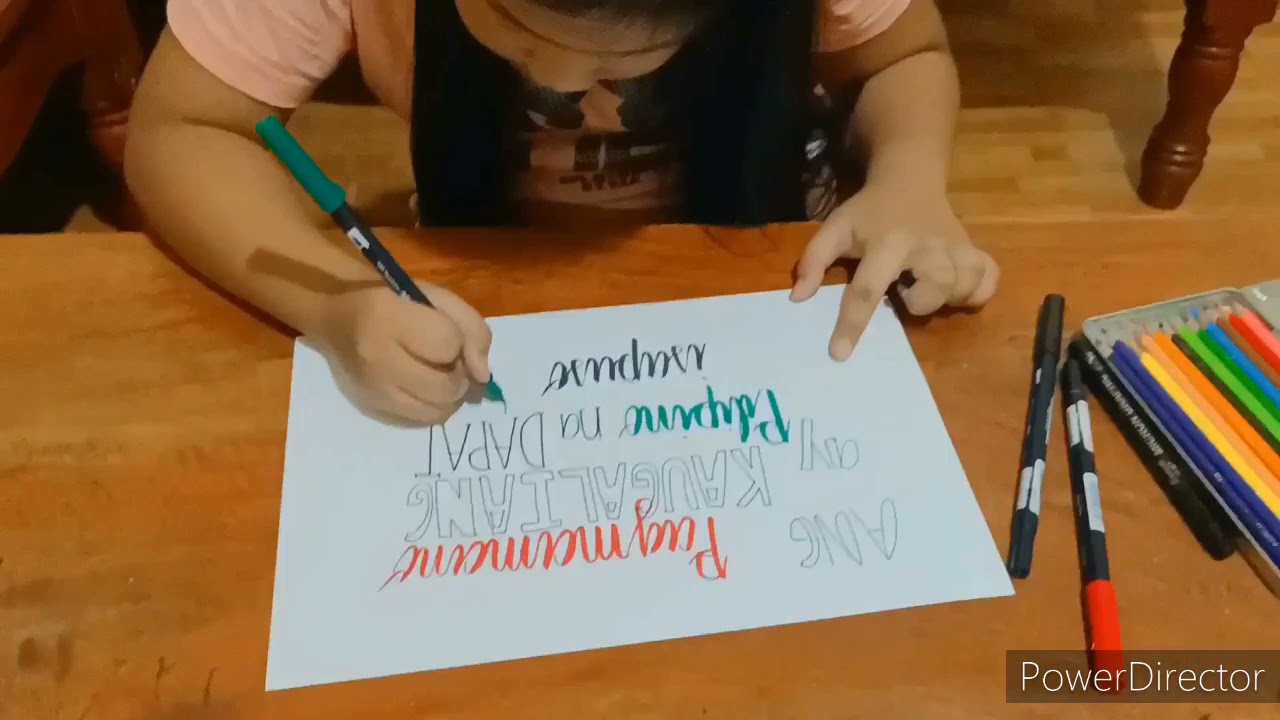 ANG Pagmamano
ay KAUGALIANG
Pilipino na DAPAT
isapuso
PowerDirector